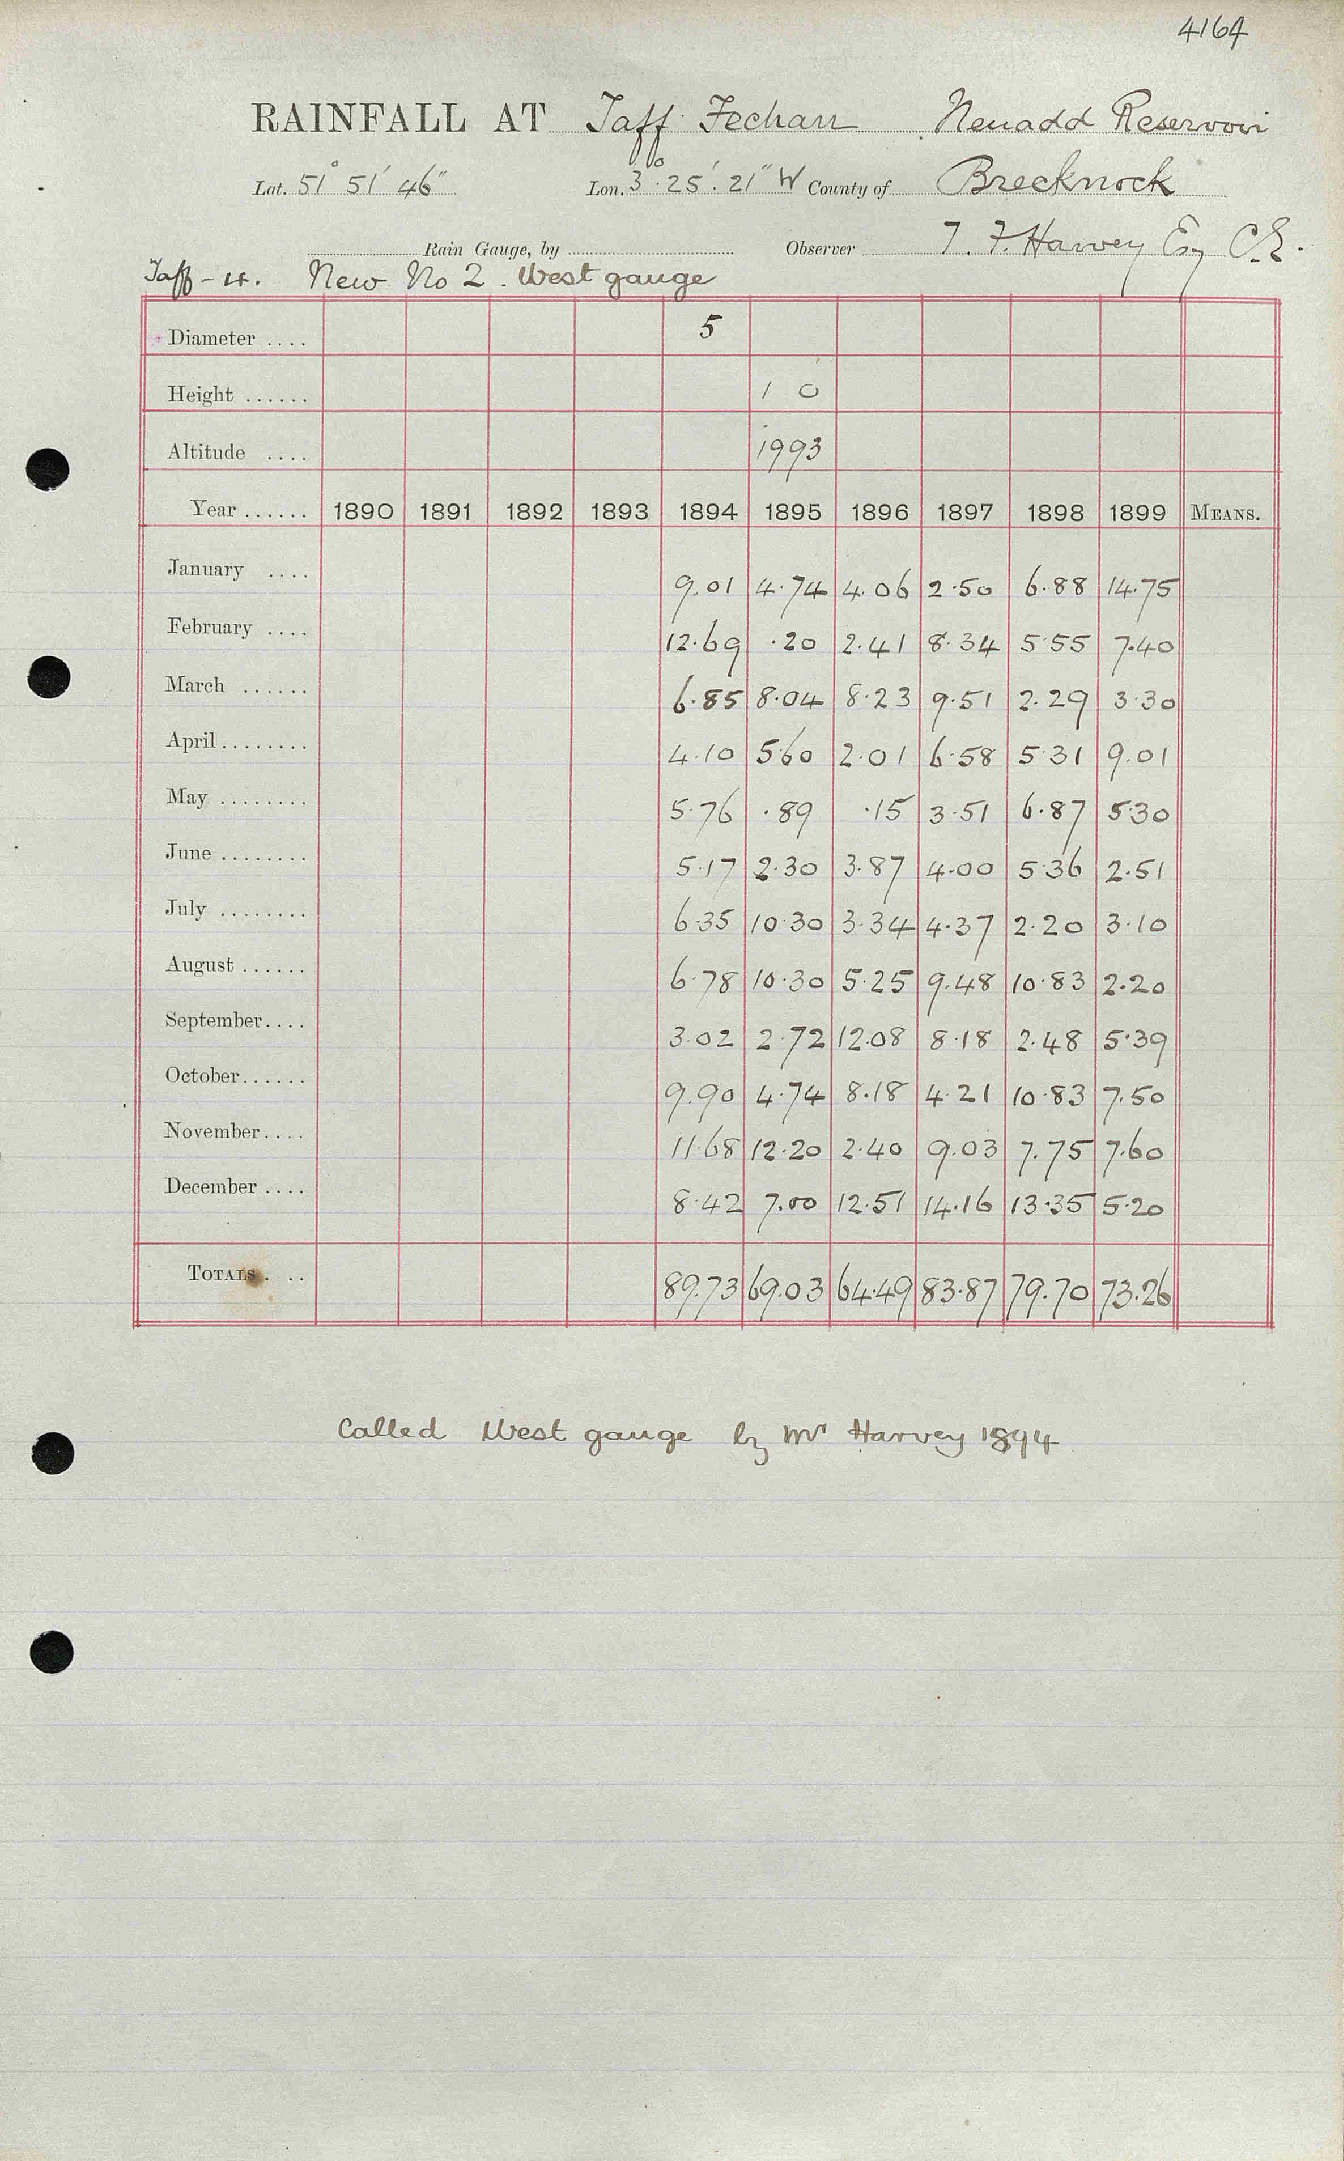 4164
RAINFALL AT Taff Fechan Neuadd Reservoir
Lat. 51° 51' 46" Lon. 3° 25'. 21" W County of Brecknock
Rain Gauge, by Observer T. F. Harvey Esq C.E.
Taff - 4. New No 2. West gauge
Diameter .... 5
Height ...... 1 0
Altitude .... 1993
Year ...... 1890 1891 1892 1893 1894 1895 1896 1897 1898 1899 MEANS.
January .... 9.01 4.74 4.06 2.50 6.88 14.75
February .... 12.69 .20 2.41 8.34 5.55 7.40
March ...... 6.85 8.04 8.23 9.51 2.29 3.30
April ........ 4.10 5.60 2.01 6.58 5.31 9.01
May ........ 5.76 .89 .15 3.51 6.87 5.30
June ........ 5.17 2.30 3.87 4.00 5.36 2.51
July ........ 6.35 10.30 3.34 4.37 2.20 3.10
August ...... 6.78 10.30 5.25 9.48 10.83 2.20
September.... 3.02 2.72 12.08 8.18 2.48 5.39
October...... 9.90 4.74 8.18 4.21 10.83 7.50
November.... 11.68 12.20 2.40 9.03 7.75 7.60
December .... 8.42 7.00 12.51 14.16 13.35 5.20
TOTALS. .. 89.73 69.03 64.49 83.87 79.70 73.26
Called West gauge by Mr Harvey 1894